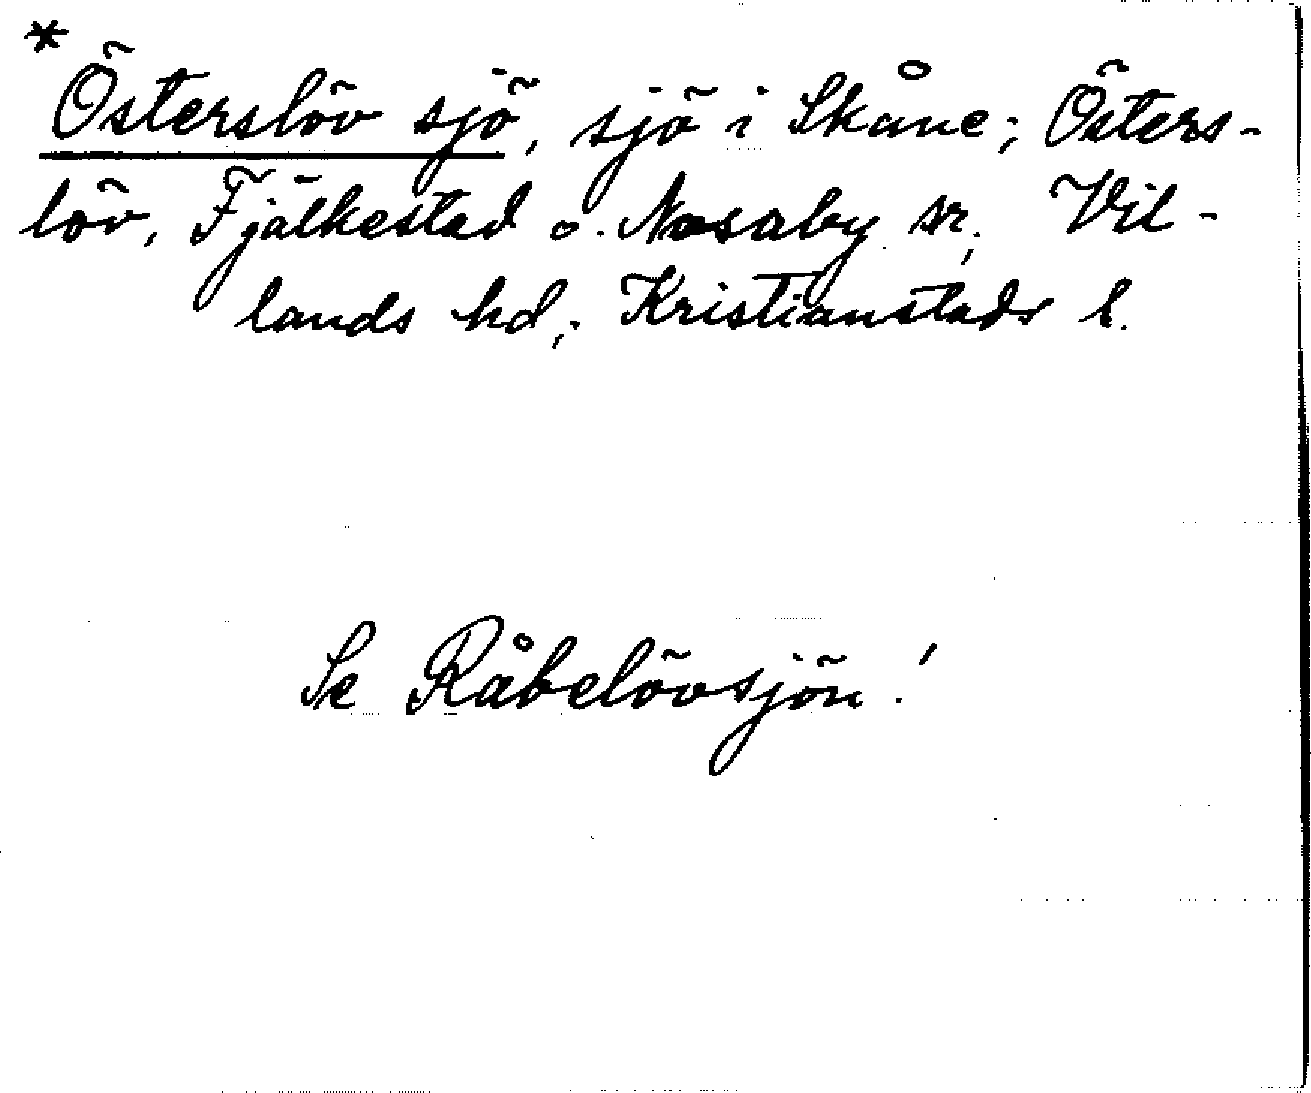 * Österslöv sjö, sjö i Skåne; Östers-
löv, Fjälkestad o. Nosaby sr, Vil-
lands hd, Kristianstads l.
Se Råbelövsjön!